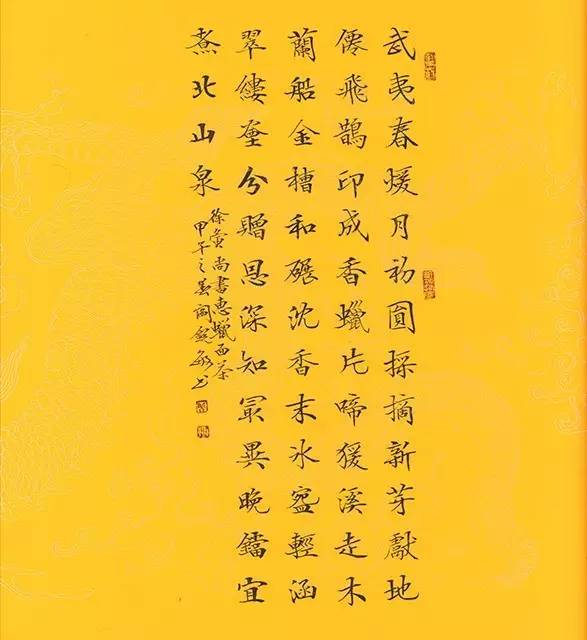 武夷春煖月初圓採摘新芽獻地
僊飛鵲印成香蠟片啼猨溪走木
蘭船金槽和碾沈香末氷盌輕涵
翠縷垔分贈恩深知冣異晚鐺宜
煮北山泉
徐夤尚書惠蠟面茶
甲午之春